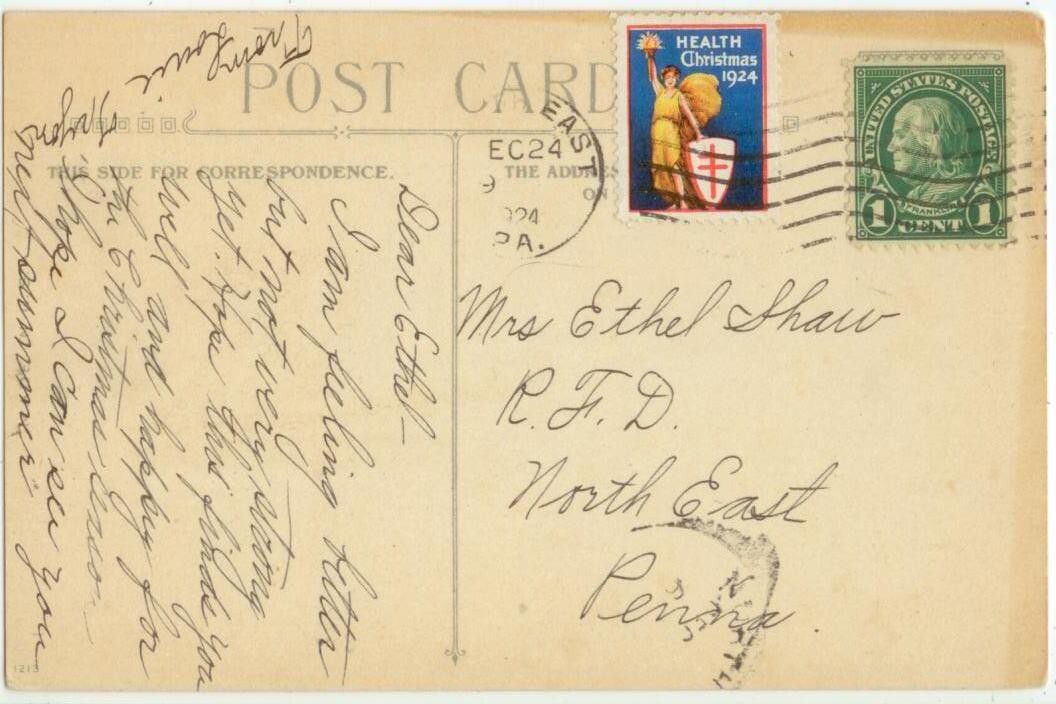 POST CARD
THIS SIDE FOR CORRESPONDENCE.
THE ADDRE
ON
HEALTH
Christmas
1924
UNITED STATES POSTAGE
FRANKLIN
1 CENT 1
EAST
EC24
924
PA.
Dear Ethel—
I am feeling better
but not very strong
yet. Hope this finds you
well, and happy for
the Christmas season
I hope I can see you
next summer
From
Mrs Ethel Shaw
R.F.D.
North East
Penna.
1213